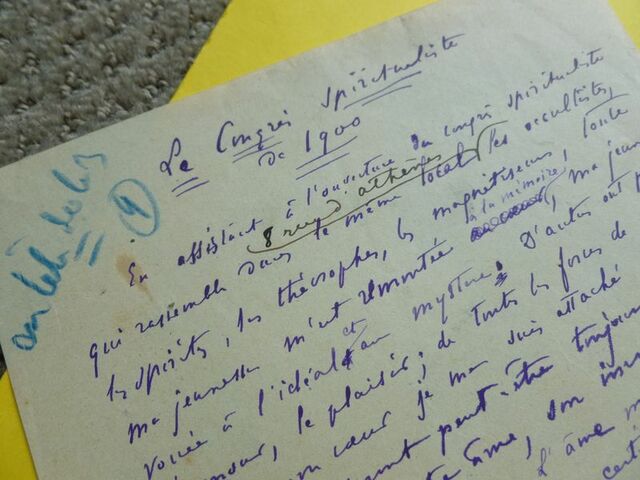 Le Congrès spiritualiste
de 1900
9
En assistant à l'ouverture du congrès spiritualiste
8 rue d'athènes
qui rassemble dans le même local les occultistes,
les spirites, les théosophes, les magnétiseurs, toute
à la mémoire,
ma jeunesse m'est remontée ma jeun
vouée à l'idéal et au mystère. D'autres ont p
amour, le plaisir; de toutes les forces de
mon cœur je me suis attaché
peut-être toujours
âme, son
L'âme m